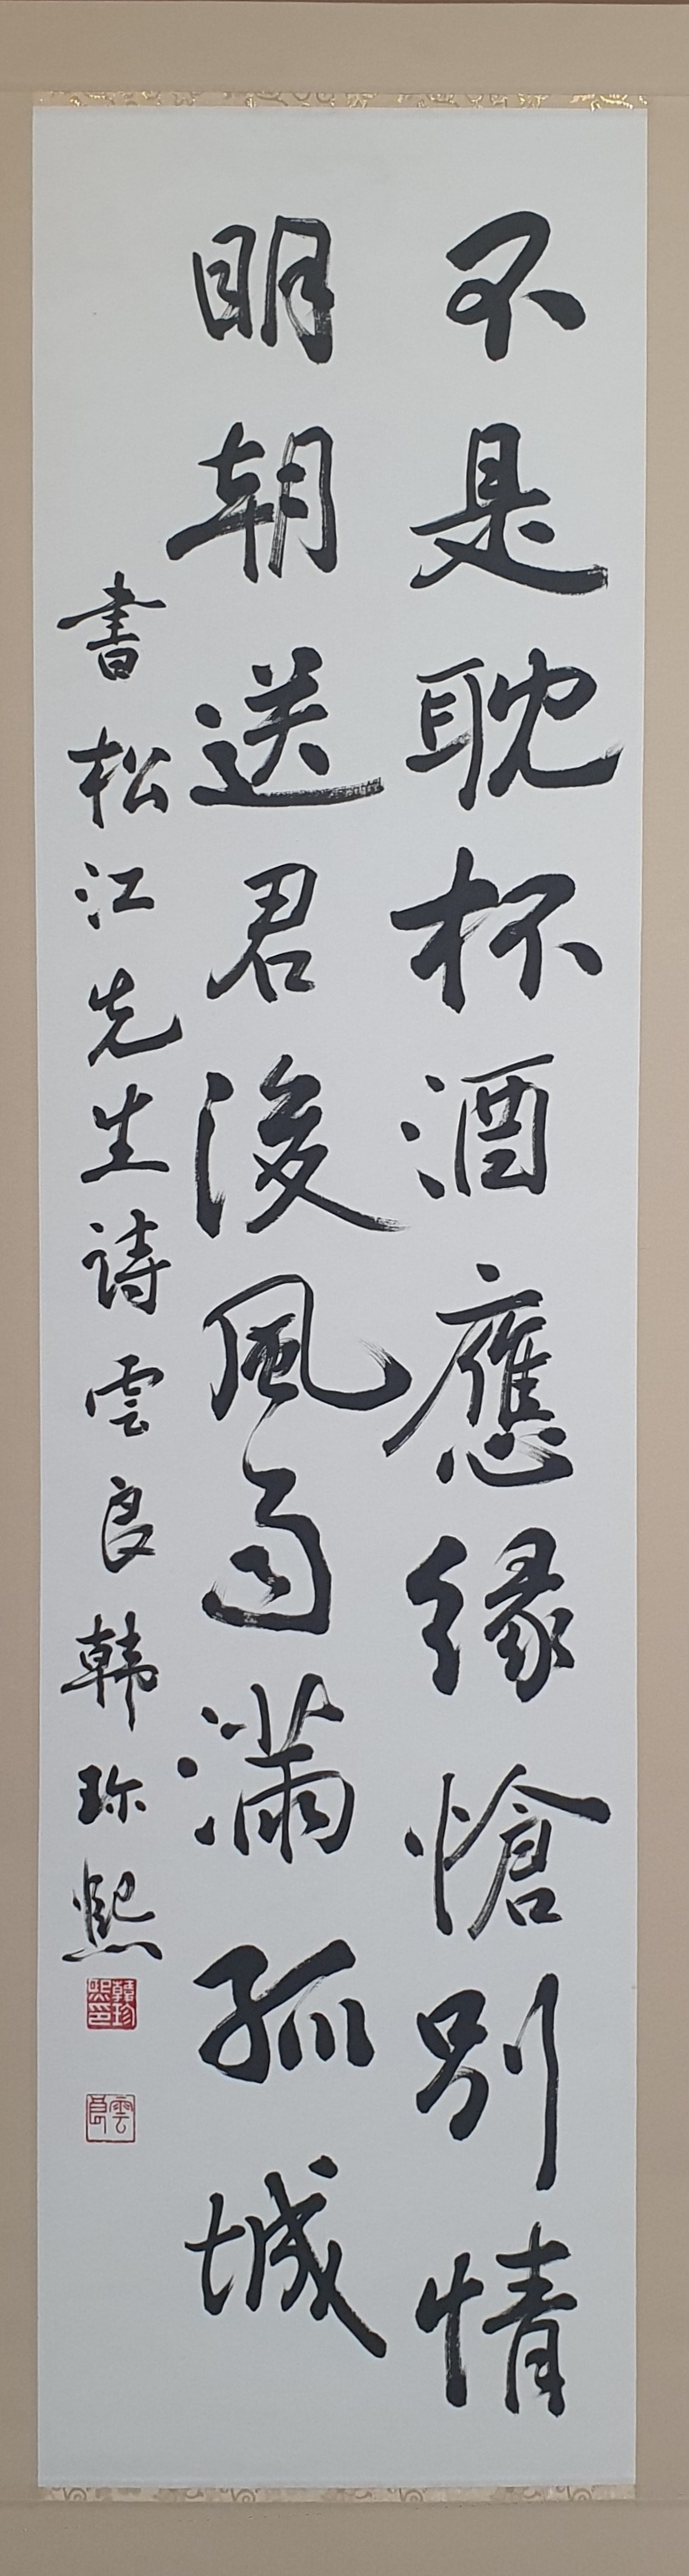 不是耽杯酒應緣愴別情
明朝送君後風雨滿孤城
書松江先生詩雲良韓珍熙
韓珍熙印
雲良